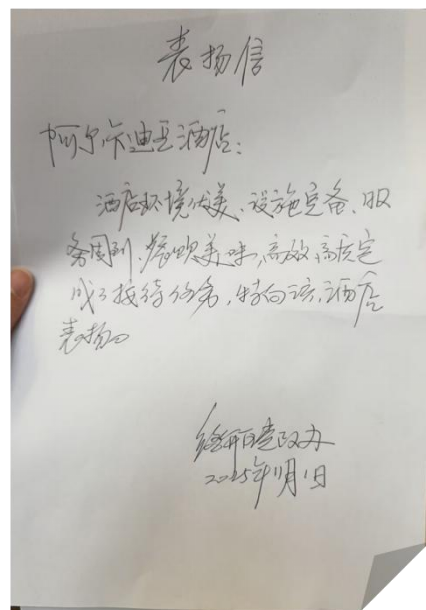 表扬信
阿尔卡迪亚酒店:
酒店环境优美、设施完备、服
务周到、餐饮美味,高效、高质完
成了接待任务,特向该酒店
表扬。
党政办
2025年11月1日